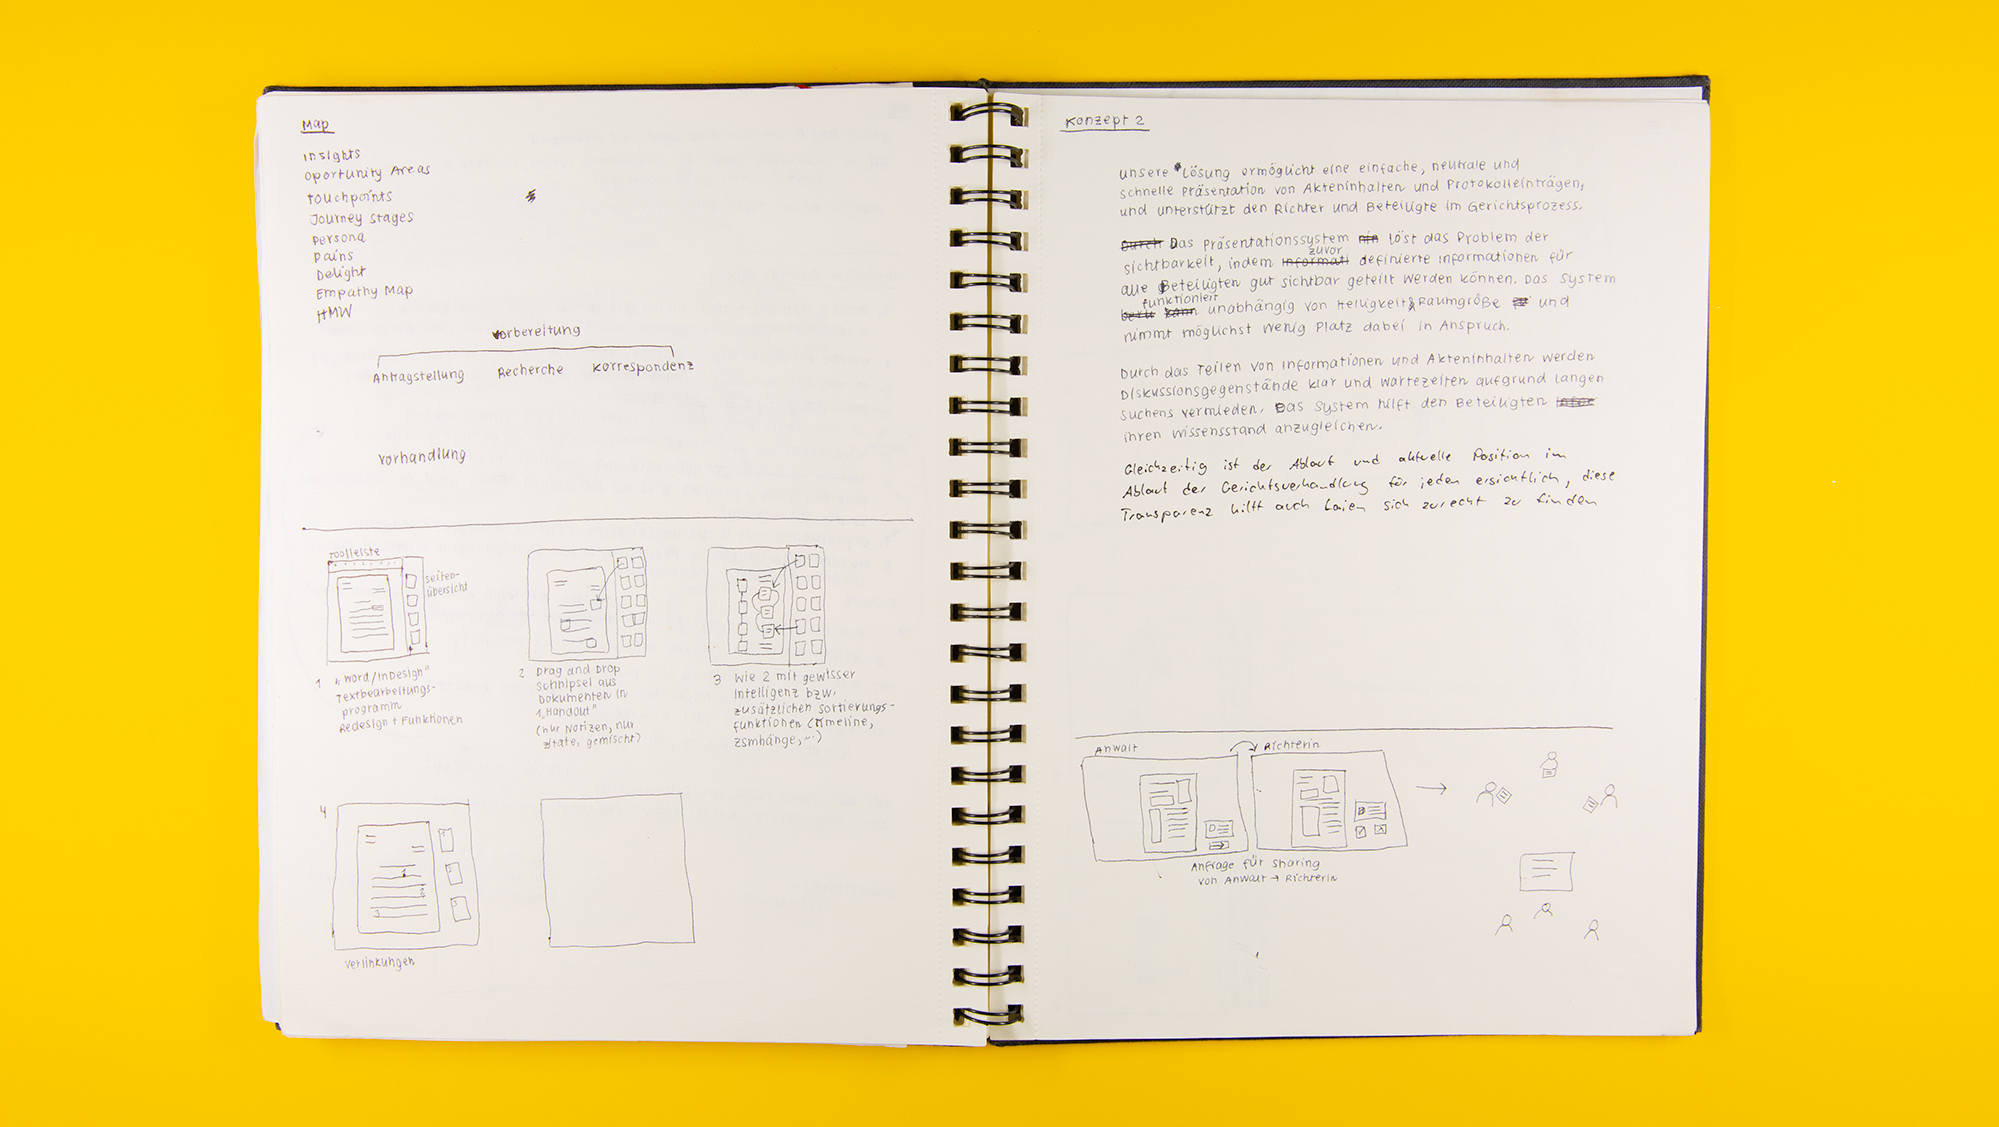 Map
Insights
Oportunity Areas
Touchpoints
Journey stages
Persona
Pains
Delight
Empathy Map
HMW
Vorbereitung
Antragstellung Recherche Korrespondenz
Vorhandlung
Toolleiste
Seiten-
übersicht
1 „Word/InDesign"
Textbearbeitungs-
programm
Redesign + Funktionen
2 Drag and Drop
Schnipsel aus
Dokumenten in
1 „Handout"
(nur Notizen, nur
Zitate, gemischt)
3 Wie 2 mit gewisser
Intelligenz bzw.
zusätzlichen Sortierungs-
funktionen (Timeline,
Zsmhänge, ...)
4
1
2
3
1
2
3
Verlinkungen
Konzept 2
Unsere Lösung ermöglicht eine einfache, neutrale und
schnelle Präsentation von Akteninhalten und Protokolleinträgen,
und unterstützt den Richter und Beteiligte im Gerichtsprozess.
Durch Das Präsentationssystem löst das Problem der
zuvor
Sichtbarkeit, indem informati definierte Informationen für
alle Beteiligten gut sichtbar geteilt werden können. Das System
funktioniert
kann unabhängig von Helligkeit, Raumgröße und
nimmt möglichst wenig Platz dabei in Anspruch.
Durch das Teilen von Informationen und Akteninhalten werden
Diskussionsgegenstände klar und Wartezeiten aufgrund langen
Suchens vermieden. Das System hilft den Beteiligten
ihren Wissensstand anzugleichen.
Gleichzeitig ist der Ablauf und aktuelle Position im
Ablauf der Gerichtsverhandlung für jeden ersichtlich, diese
Transparenz hilft auch Laien sich zurecht zu finden
Anwalt Richterin
Anfrage für Sharing
von Anwalt → Richterin